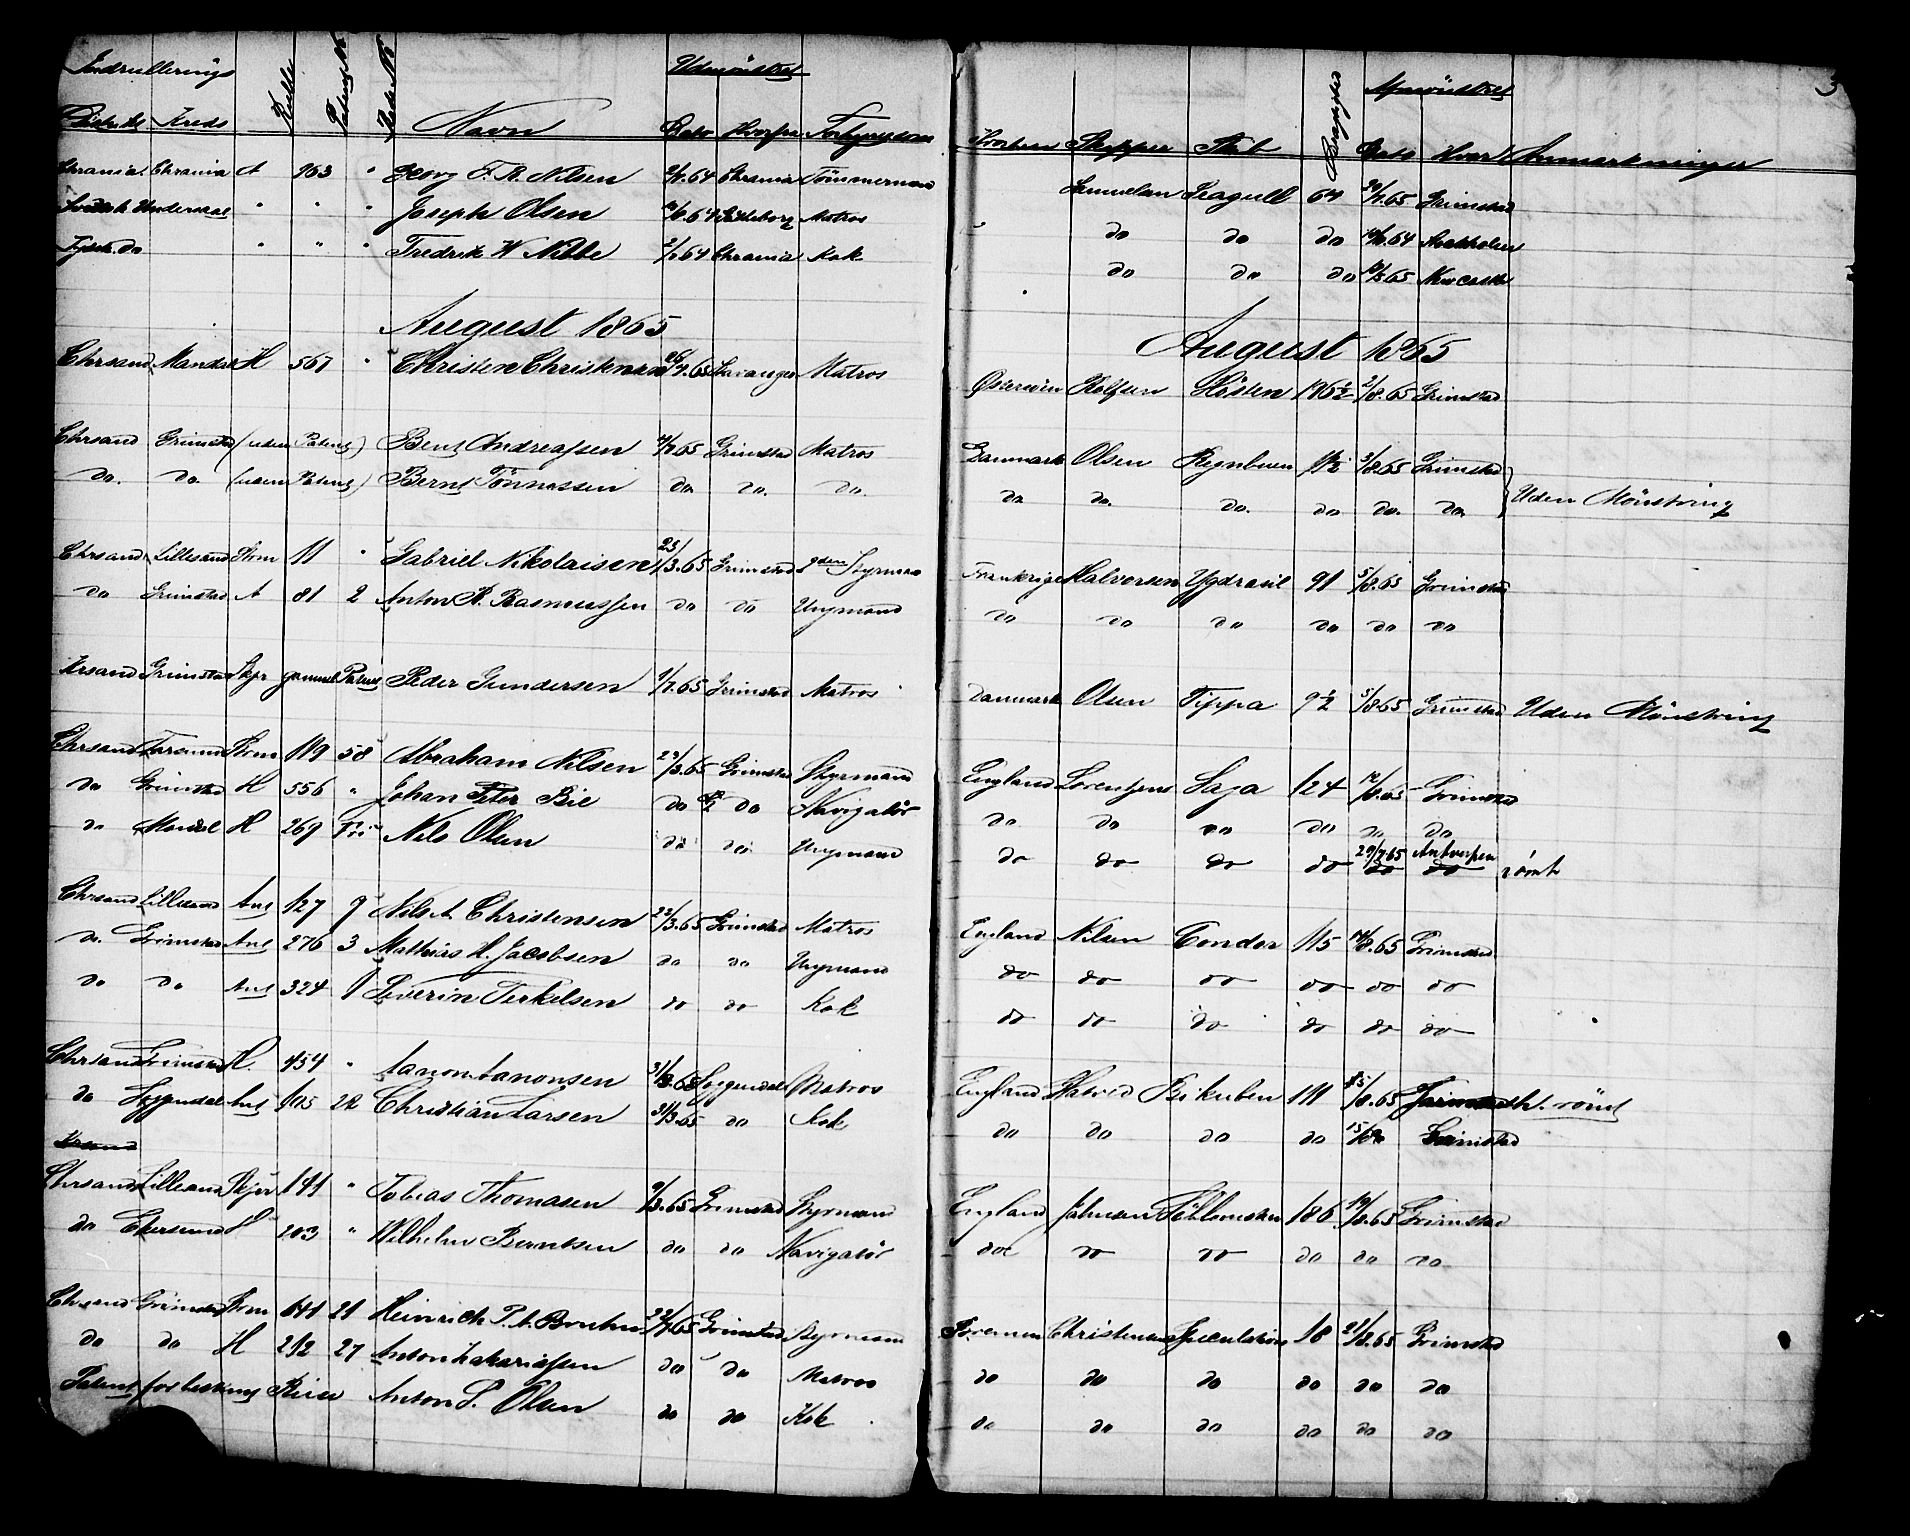 Indrullerings Udmönstret
Distrikt Kreds Rulle Patent No Navn Dato Hvorfra
Chrania Chrania A 963 " Georg F. R. Nilsen 64 Chrania Tömmermand
Svensk Undersaat " " " Joseph Olsen 64 Göteborg Matros
Tysk do " " " Fredrik W Nibbe 64 Chrania Kok
August 1865
Chrsand Mandal H 567 " Christen Christensen 26/4.65 Stavanger Matros
Chrsand Grimstad (uden Patent) Bent Andreassen 65 Grimstad Matros
do. do. (uden Patent) Bernt Tönnessen do do. do.
Chrsand Lillesand Hom 11 " Gabriel Nikolaisen 25/3.65 Grimstad 2den Styrmand
do Grimstad A 81 2 Anton R. Rasmussen do do Ungmand
Krsand Grimstad Skpr gammel Patent Peder Gundersen 1/7.65 Grimstad Matros
Chrsand Farsund Hom 119 58 Abraham Nilsen 23/3.65 Grimstad Styrmand
do Grimstad H 556 " Johan Peter Bie do do Navigatör
do Mandal H 269 Nils Olsen do do Ungmand
Chrsand Lillesand Ant 127 9 Nils A Christensen 22/3.65 Grimstad Matros
do. Grimstad Ant 276 3 Mathias H. Jacobsen do do Ungmand
do do Ant 324 1 Severin Terkelsen do do Kok
Chrsand Grimstad H. 454 " Aanon Aanonsen 31/3.65 Soggendal Matros
do Soggendal Ant 105 22 Christian Larsen 31/3.65 do Kok
Krsand
Chrsand Lillesand Skpr 141 " Tobias Thomasen 9/3.65 Grimstad Styrmand
do Ekersund H 203 " Wilhelm Berntsen do do Navigatör
Chrsand Grimstad Hom 641 21 Heinrich P. A. Bruhn 65 Grimstad Styrmann
do do H 292 27 Anton Zakariassen do do Matros
Patent for Reise Anton S. Olsen do do Kok
3
Afmönstret
Skipper Skib Dato Hvor Anmærkninger
Samuelsen Seagull 64 65 Grimstad
do do do 64 Stockholm
do do do 65 Newcastle
August 1865
Rolfsen Hösten 196½ 2/8.65 Grimstad
Danmark Olsen Regnbuen 11½ 3/8.65 Grimstad
do do. do. do do. do. Uden Mönstring
Frankrige Halvorsen Ygdrasil 91 5/8.65 Grimstad
do do do do do do
Danmark Olsen Tippa 9½ 5/8.65 Grimstad Uden Mönstring
England Lorentzen Saga 124 65 Grimstad
do do do do do do
29/7.65 Antwerpen
do do do do do do römt
England Nilsen Condor 115 14/8.65 Grimstad
do do do do do do
do do do do do do
England Bikuben 111 8.65 römt
do do do do Grimstad
England Johnsen 186 19/8.65 Grimstad
do do do do do do
Bremen Christensen Speculation 18 65 Grimstad
do do do do do do
do do do do do do